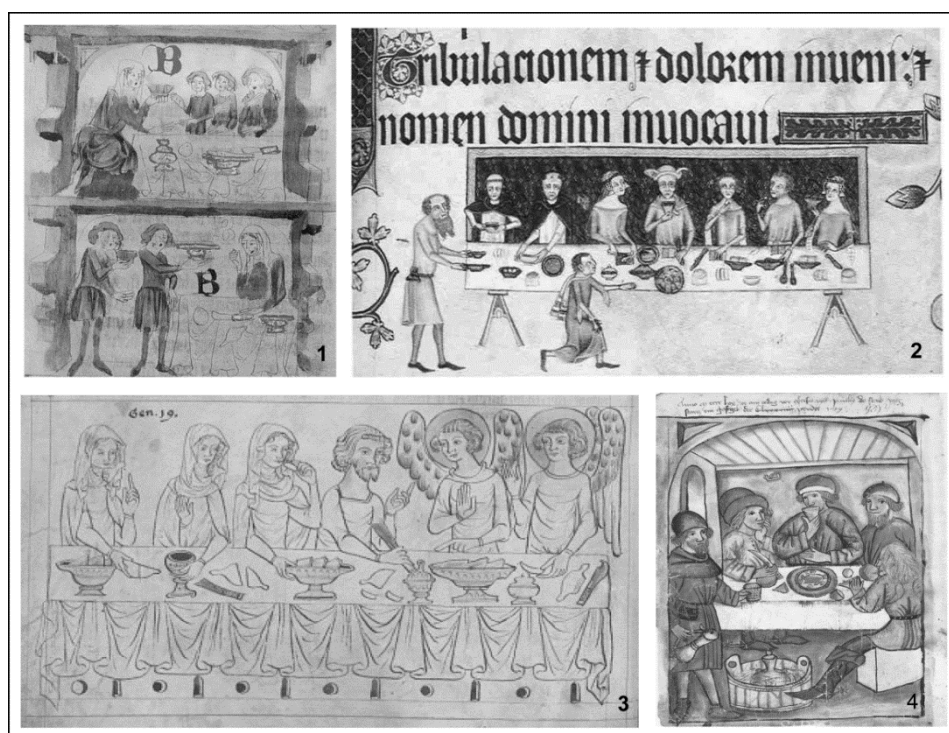 B
B
1
Tribulacionem ⁊ dolorem inueni: ⁊
nomen domini inuocaui.
2
Gen. 19.
3
4